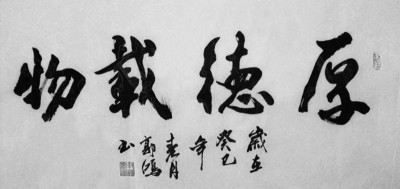 厚德載物
歲在
癸巳
年
春月
郭鴻
書